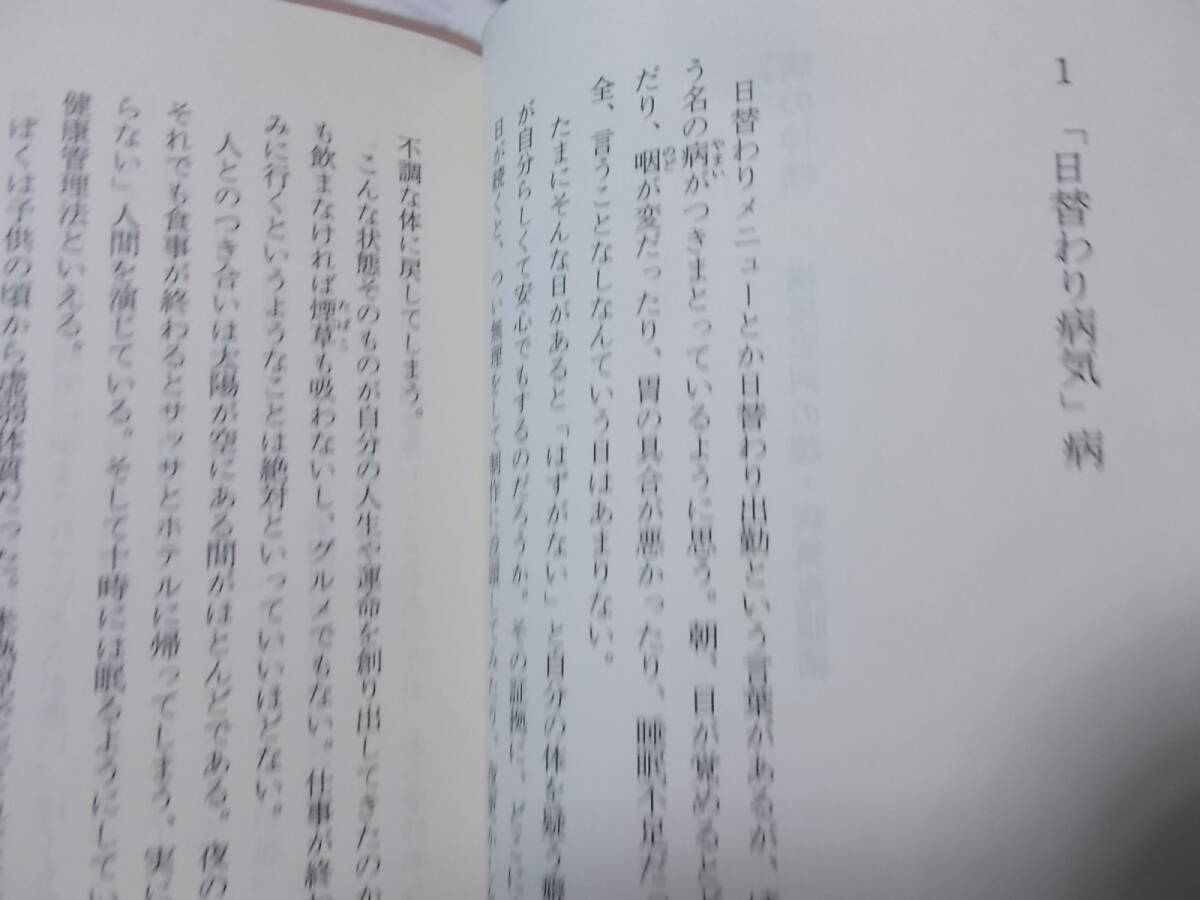 1 「日替わり病気」病
日替わりメニューとか日替わり出勤という言葉があるが、
う名の病がつきまとっているように思う。朝、目が覚めると
だり、咽が変だったり、胃の具合が悪かったり、睡眠不足だ
全、言うことなしなんていう日はあまりない。
たまにそんな日があると「はずがない」と自分の体を疑う癖
が自分らしくて安心でもするのだろうか。その証拠に、どこに
日が続くと、つい無理をして制作に没頭してみたり、
不調な体に戻してしまう。
こんな状態そのものが自分の人生や運命を創り出してきたのか
も飲まなければ煙草も吸わないし、グルメでもない。仕事が終わ
みに行くというようなことは絶対といっていいほどない。
人とのつき合いは太陽が空にある間がほとんどである。夜の
それでも食事が終わるとサッサとホテルに帰ってしまう。実に
らない」人間を演じている。そして十時には眠るようにしてい
健康管理法といえる。
ぼくは子供の頃から虚弱体質だった。